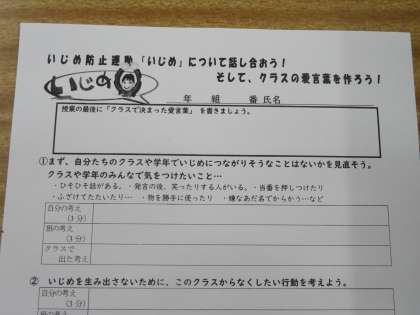 いじめ防止運動「いじめ」について話し合おう！
そして、クラスの愛言葉を作ろう！
いじめ
年 組 番 氏名
授業の最後に「クラスで決まった愛言葉」を書きましょう。
①まず、自分たちのクラスや学年でいじめにつながりそうなことはないかを見直そう。
クラスや学年のみんなで気をつけたいこと…
・ひそひそ話がある。・発言の後、笑ったりする人がいる。・当番を押しつけたり
・ふざけてたたいたり… ・物を勝手に使ったり ・嫌なあだ名でからかう…など
自分の考え
(3分)
班の考え
(3分)
クラスで
出た考え
② いじめを生み出さないために、このクラスからなくしたい行動を考えよう。
自分の考え
(3分)